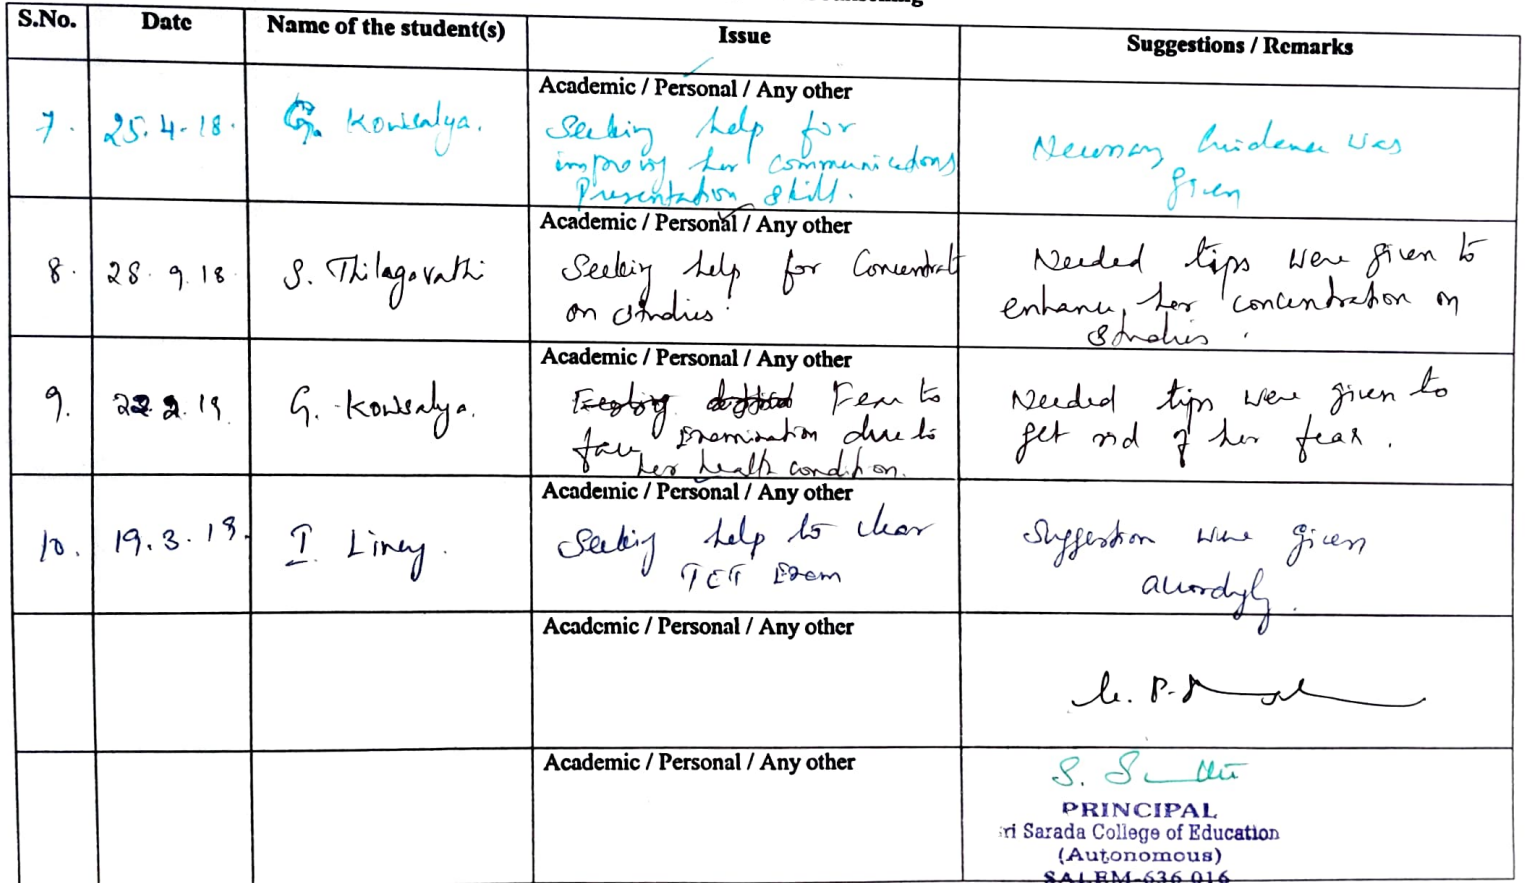 S.No. Date Name of the student(s) Issue Suggestions / Remarks
Academic / Personal / Any other
7. 25.4.18. G. Kowsalya. Seeking help for
improving her communications
Presentation skill.
Necessary Guidance was
given
Academic / Personal / Any other
8. 28.9.18 S. Thilagavathi Seeking help for Concentrat
on studies.
Needed tips were given to
enhance her concentration on
studies.
Academic / Personal / Any other
9. 2.19 G. Kowsalya. Fear to
face Examination due to
her health condition.
Needed tips were given to
get rid of her fear.
Academic / Personal / Any other
10. 19.3.19. I Lincy. Seeking help to clear
TET Exam
Suggestion were given
accordingly.
Academic / Personal / Any other
Academic / Personal / Any other
PRINCIPAL
ri Sarada College of Education
(Autonomous)
SALEM-636 016